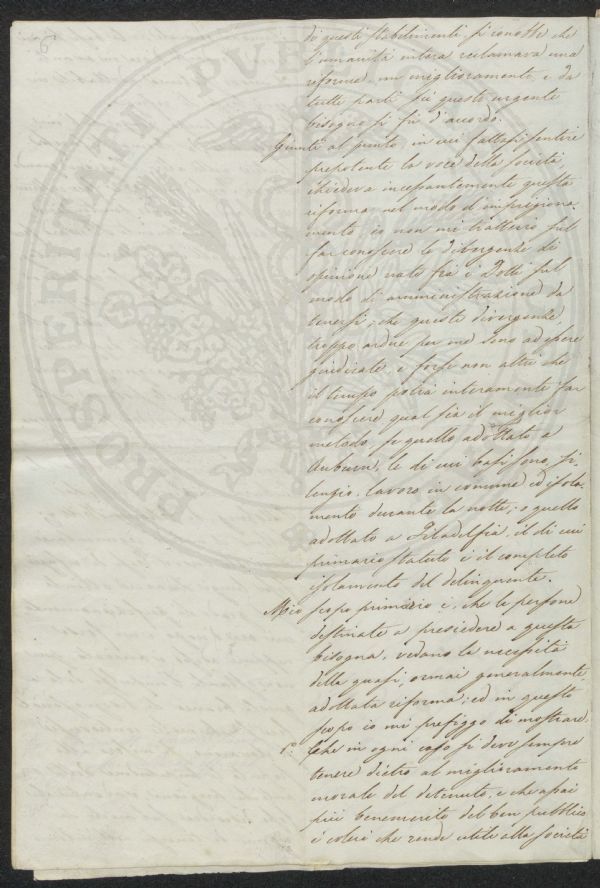 6
di questi stabilimenti, si conobbe che
l'umanità intera reclamava una
riforma, un miglioramento, e da
tutte parti su questo urgente
bisogno si fu d'accordo.
Giunti al punto, in cui fattasi sentire
prepotente la voce della società
chiedeva incessantemente questa
riforma nel modo d'imprigiona-
mento, io non mi tratterrò sul
far conoscere le divergenze di
opinione nate fra i Dotti sul
modo di amministrazione da
tenersi; che queste divergenze
troppo ardue per me sono ad essere
giudicate, e forse non altri che
il tempo potrà interamente far
conoscere qual sia il miglior
metodo, se quello adottato a
Auburn, le di cui basi sono, si-
lenzio, lavoro in comune ed isola-
mento durante la notte; o quello
adottato a Filadelfia, il di cui
primario statuto è il completo
isolamento del delinquente.
Mio scopo primario è, che le persone
destinate a presiedere a questa
bisogna, vedano la necessità
della quasi, ormai generalmente
adottata riforma; ed in questo
scopo io mi prefiggo di mostrare.
1.° Che in ogni caso si deve sempre
tenere dietro al miglioramento
morale del detenuto, e che assai
più benemerito del ben pubblico
è colui che rende utile alla società
PROSPERITATI PUBL